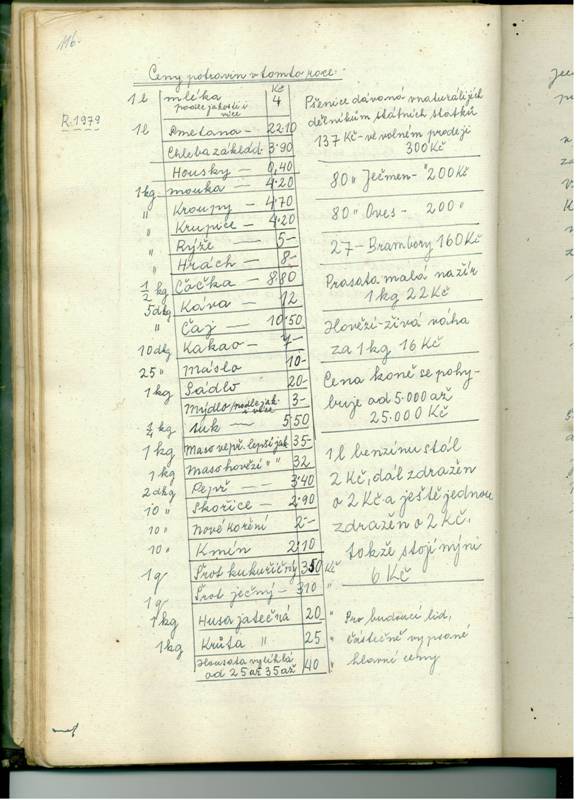 116.
Ceny potravin v tomto roce:
R. 1979
Kč
1 l mléka 4
podle jakosti i
více
1l Smetana — 22·10
Chleba základ. 3·90
Housky — 0,40
1 kg mouka — 4·20
" Kroupy — 4·70
" Krupice — 4·20
" Rýže — 5—
" Hrách — 8—
1/2 kg Čočka — 8·80
5 dkg Káva — 12
" Čaj — 10·50
10 dkg Kakao — 7—
25 " Máslo 10—
1 kg Sádlo 20—
Mýdlo / podle jak.
i více 3—
1/4 kg tuk — 5·50
1 kg Maso vepř. lepší jak. 35—
1 kg Maso hovězí " " 32
2 dkg Pepř — 3·40
10 " Skořice — 2·90
10 " Nové koření 2—
10 " Kmín 2·10
1 q Šrot kukuřičný 350 Kč
1 q Šrot ječný — 310 "
1 kg Husa jatečná 20 "
1 kg Krůta " 25 "
Housata vylíhlá
od 25 až 35 až 40 "
Pšenice dávaná v naturáliích
dělníkům státních statků
137 Kč — ve volném prodeji
300 Kč
80 " Ječmen — "200 Kč
80 " Oves — 200 "
27 — Brambory 160 Kč
Prasata malá na žír
1 kg 22 Kč
Hovězí-živá váha
za 1 kg 16 Kč
Cena koně se pohy-
buje od 5.000 až
25.000 Kč
1 l benzinu stál
2 Kč, dál zdražen
o 2 Kč a ještě jednou
zdražen o 2 Kč,
takže stojí nyní
6 Kč
Pro budoucí lid,
částečně vypsané
hlavní ceny